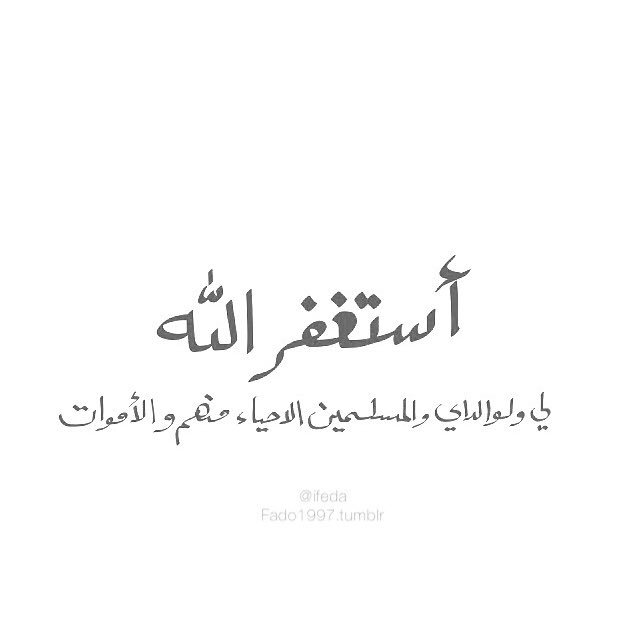 أستغفر الله
لي ولوالداي والمسلمين الاحياء منهم والأموات
@ifeda
Fado1997.tumblr